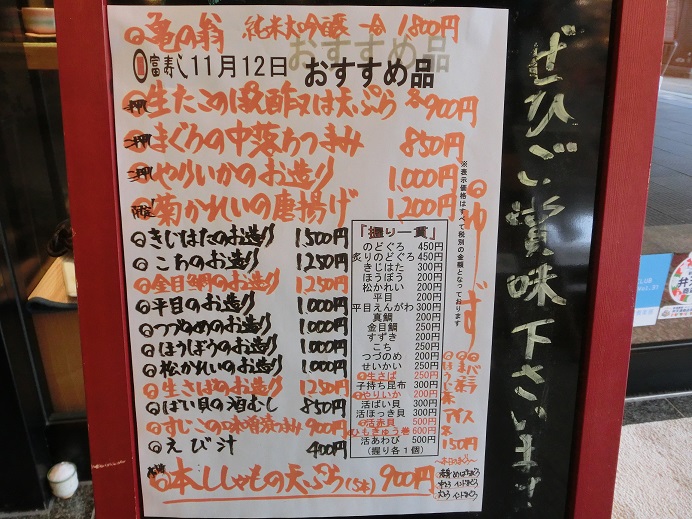 亀の翁 純米大吟醸 一合 1,800円
富寿し 11月12日 おすすめ品
生たこのぽん酢又は天ぷら 各900円
まぐろの中落ちつまみ 850円
やりいかのお造り 1,000円
菊かれいの唐揚げ 1,200円
※表示価格はすべて税別の金額となっております
きじはたのお造り 1,500円
こちのお造り 1,250円
金目鯛のお造り 1,250円
平目のお造り 1,000円
つづのめのお造り 1,000円
ほうぼうのお造り 1,000円
松かれいのお造り 1,000円
生さばのお造り 1,250円
ばい貝の酒むし 850円
すじこの味噌漬つまみ 900円
えび汁 400円
本ししゃもの天ぷら(5本) 900円
「握り一貫」
のどぐろ 450円
炙りのどぐろ 450円
きじはた 300円
ほうぼう 200円
松かれい 200円
平目 200円
平目えんがわ 300円
真鯛 200円
金目鯛 250円
すずき 200円
こち 250円
つづのめ 200円
せいかい 250円
生さば 250円
子持ち昆布 300円
やりいか 200円
活ばい貝 300円
活ほっき貝 300円
活赤貝 500円
ひもきゅう巻 600円
活あわび 500円
(握り各1個)
ゆず
抹茶
ほうじ茶
アイス
150円
ぜひご賞味下さいませ